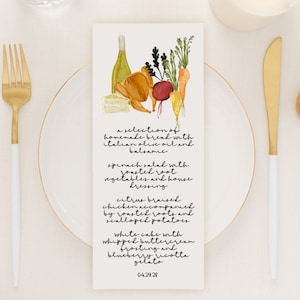 a selection of
homemade bread with
italian olive oil and
balsamic
spinach salad with
roasted root
vegetables and house
dressing
citrus braised
chicken accompanied
by roasted roots and
scalloped potatoes
white cake with
whipped buttercream
frosting and
blueberry ricotta
gelato
04.29.28